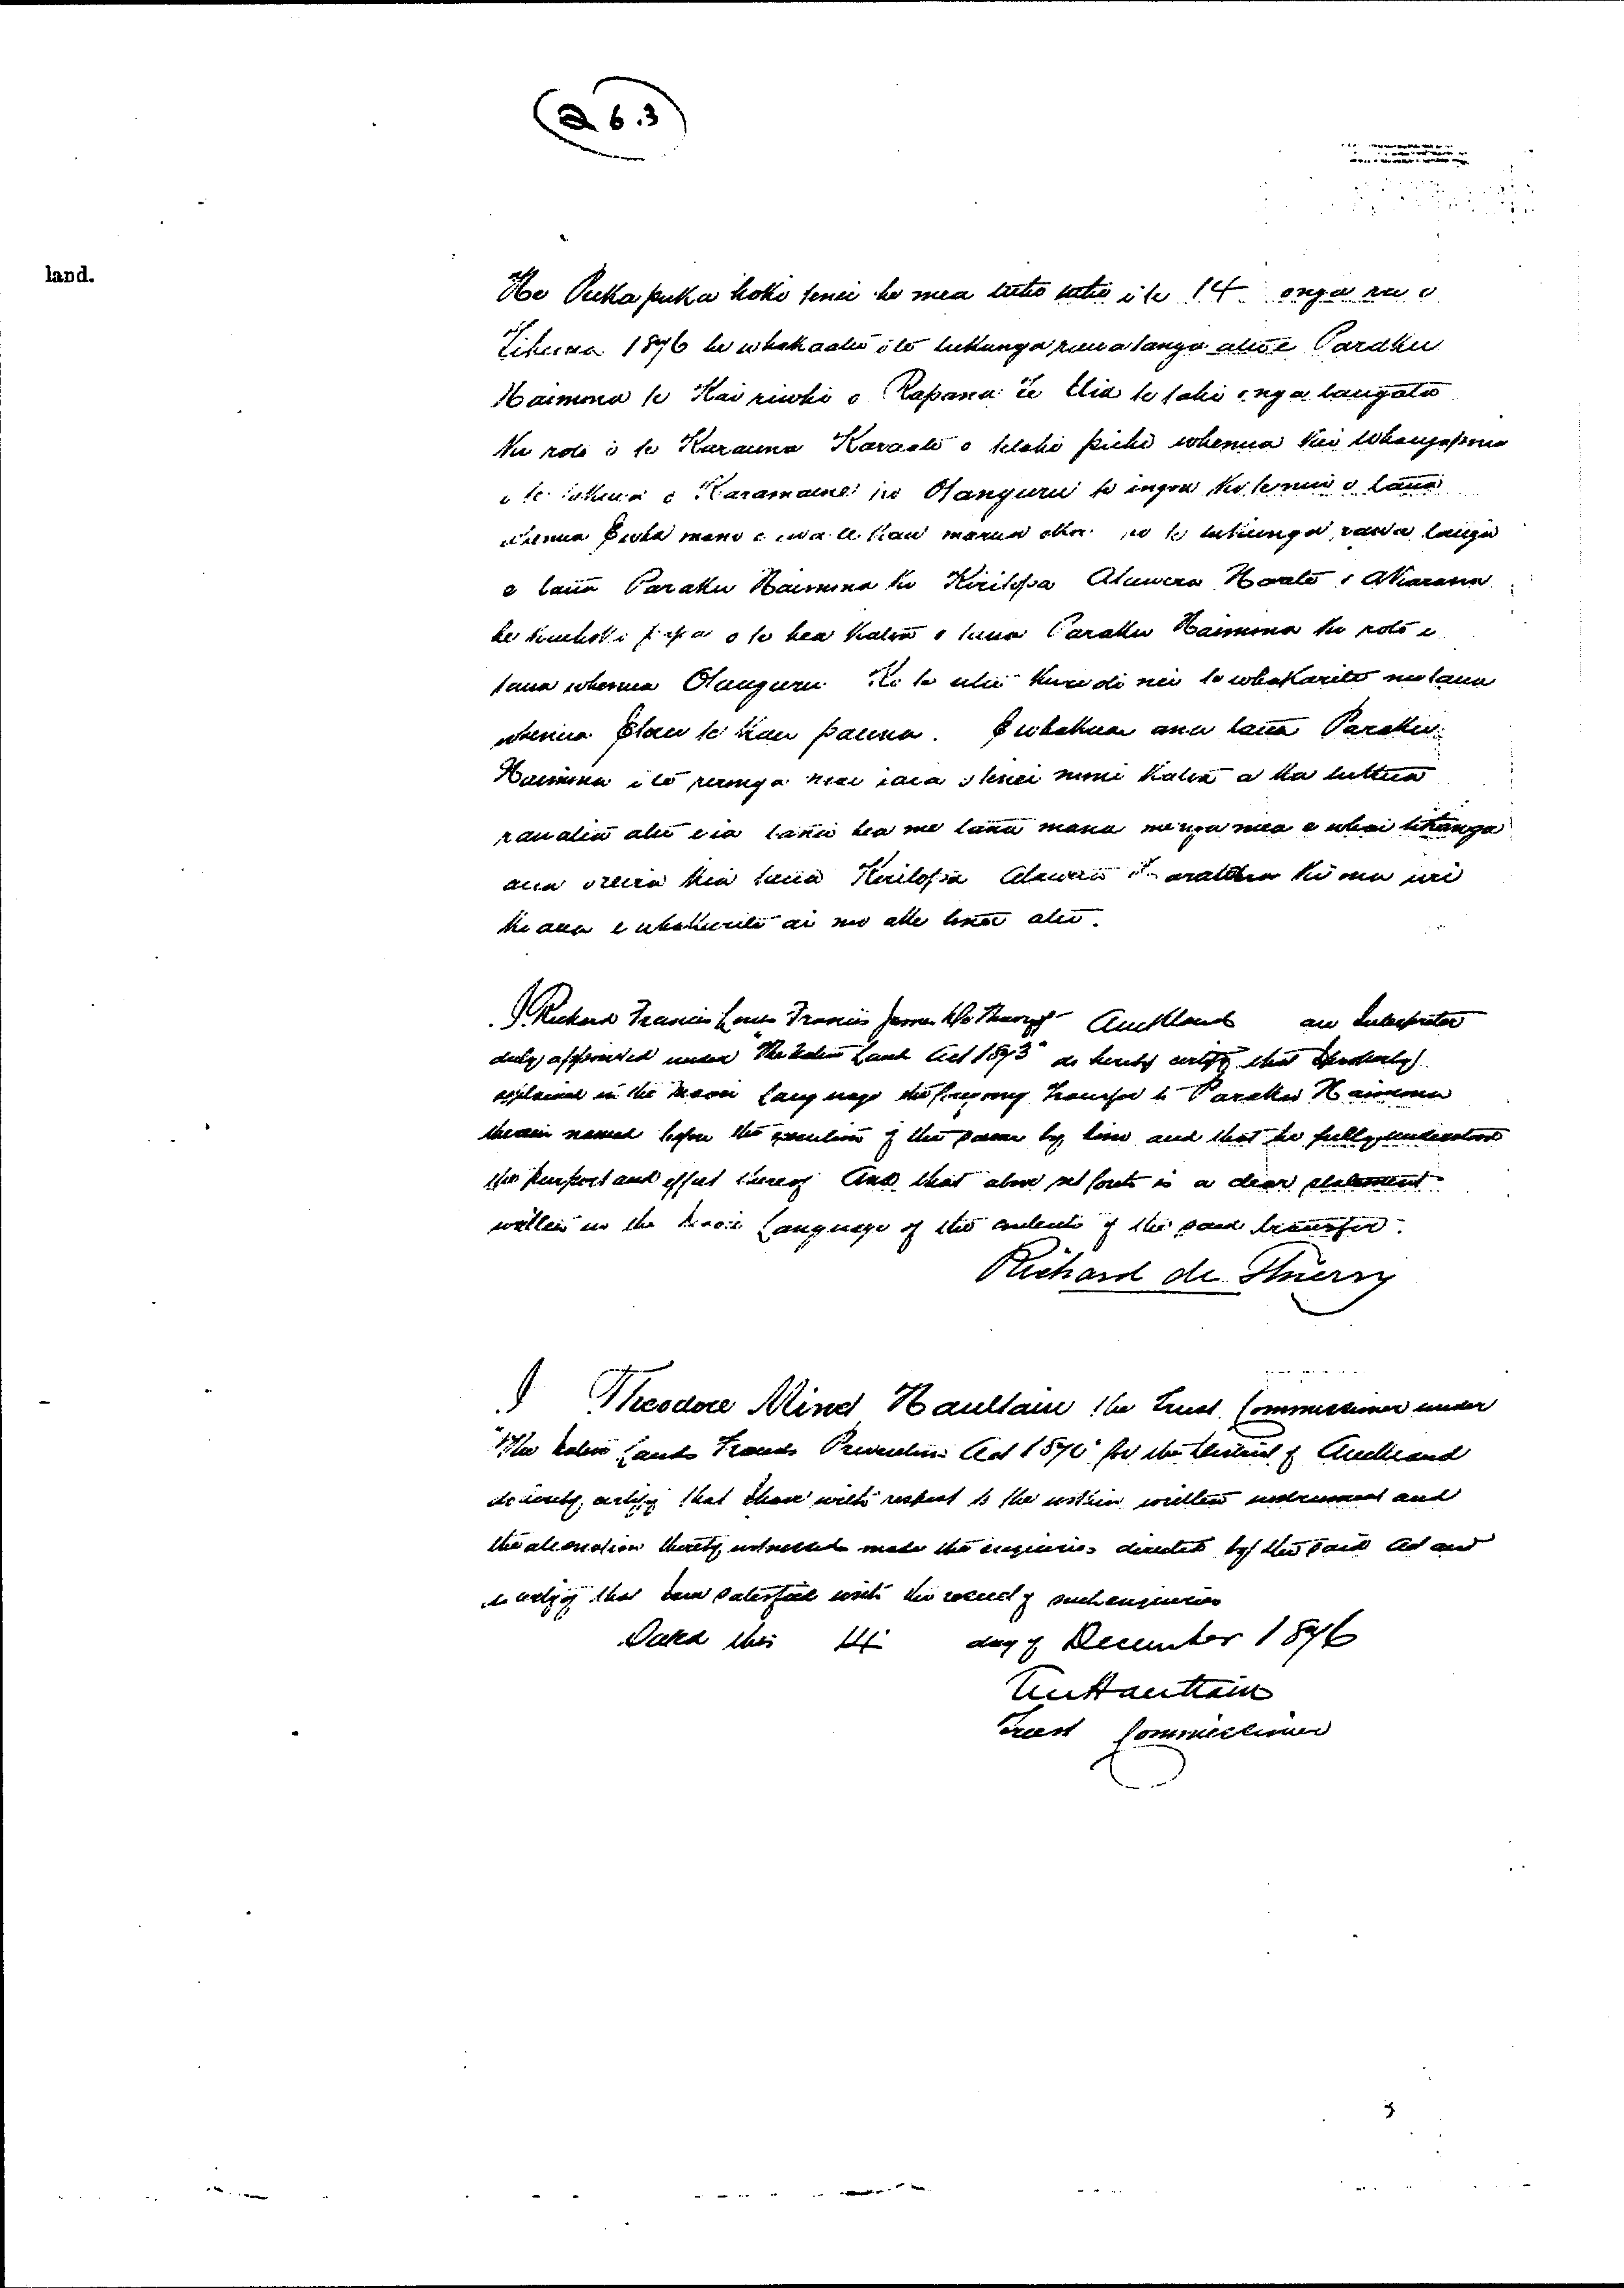 26.3
land.
He Puka puka hoki tenei he mea tuhi tuhi i te 14 o nga ra o
Tihema 1876 he whakaatu i te tukunga rawa tanga atu e Paraku
Haimona te Kai riiwhi o Rapana te tahi o nga tangata
Ki roto i te Karauna Karaati o tetahi pihi whenua kei Whangapoua
i te takiwa o Karamaene ko Otanguru te ingoa Ko te nui o taua
whenua mano e rua te kau marua eka ko te tukunga rawa tanga
e taua Paraku Haimona ki Kiritopa Atawera Harate i Akarana
o te hea katoa o taua Paraku Haimona ki roto i
taua whenua Otanguru Ko te utu kua oti nei te whakarite mo taua
whenua E toru te kau pauna. E whakaae ana taua Paraku
Haimona i te rironga mai i aia o tenei moni katoa a ka tukua
rawatia atu e ia tana hea me tana mana me nga mea e whai tikanga
ana reira kia taua Kiritopa Atawera ki ona uri
ki ana e whakarite ai mo ake tonu atu.
I Richard Francis Louis Francis James de Thierry Auckland an Interpreter
duly appointed under "The Native Land Act 1873" do hereby certify that I
explained in the Maori Language the foregoing Transfer to Paraku Haimona
therein named before the execution of the same by him and that he fully understood
the purport and effect thereof And that above set forth is a clear statement
written in the Maori Language of the contents of the said transfer.
Richard de Thierry
I Theodore Minet Haultain the Trust Commissioner under
"The Native Lands Frauds Prevention Act 1870" for the District of Auckland
do hereby certify that I have with respect to the within written instrument and
the alienation thereby witnessed made the inquiries directed by the said Act and
I certify that I am satisfied with the result of such enquiries
Dated this 14 day of December 1876
TM Haultain
Trust Commissioner